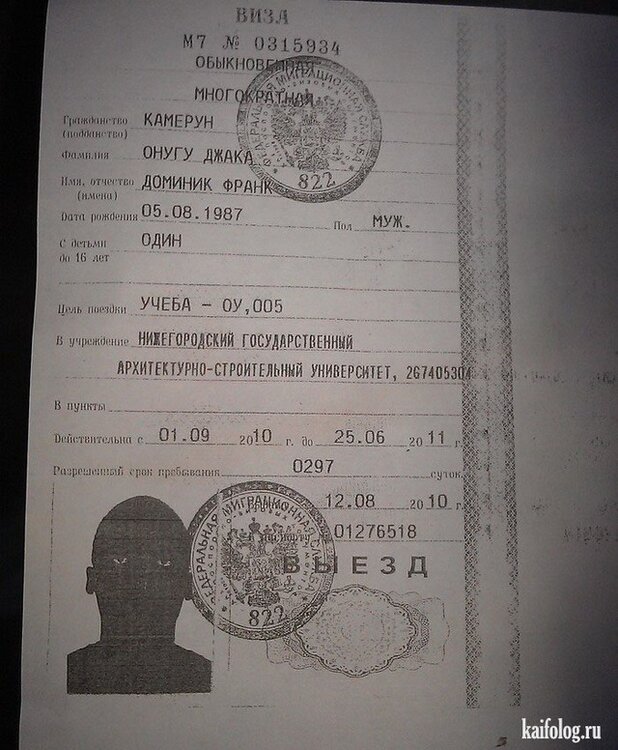 ВИЗА
М7 № 0315934
ОБЫКНОВЕННАЯ
МНОГОКРАТНАЯ
Гражданство (подданство) КАМЕРУН
Фамилия ОНУГУ ДЖАКА
Имя, отчество (имена) ДОМИНИК ФРАНК
Дата рождения 05.08.1987 Пол МУЖ.
С детьми до 16 лет ОДИН
Цель поездки УЧЕБА - ОУ,005
В учреждение НИЖЕГОРОДСКИЙ ГОСУДАРСТВЕННЫЙ
АРХИТЕКТУРНО-СТРОИТЕЛЬНЫЙ УНИВЕРСИТЕТ, 267405304
В пункты
Действительна с 01.09 2010 г. до 25.06 2011 г.
Разрешенный срок пребывания 0297 суток
12.08 2010 г.
паспорту 01276518
ВЫЕЗД
ФЕДЕРАЛЬНАЯ МИГРАЦИОННАЯ СЛУЖБА
822
ФЕДЕРАЛЬНАЯ МИГРАЦИОННАЯ СЛУЖБА
822
kaifolog.ru